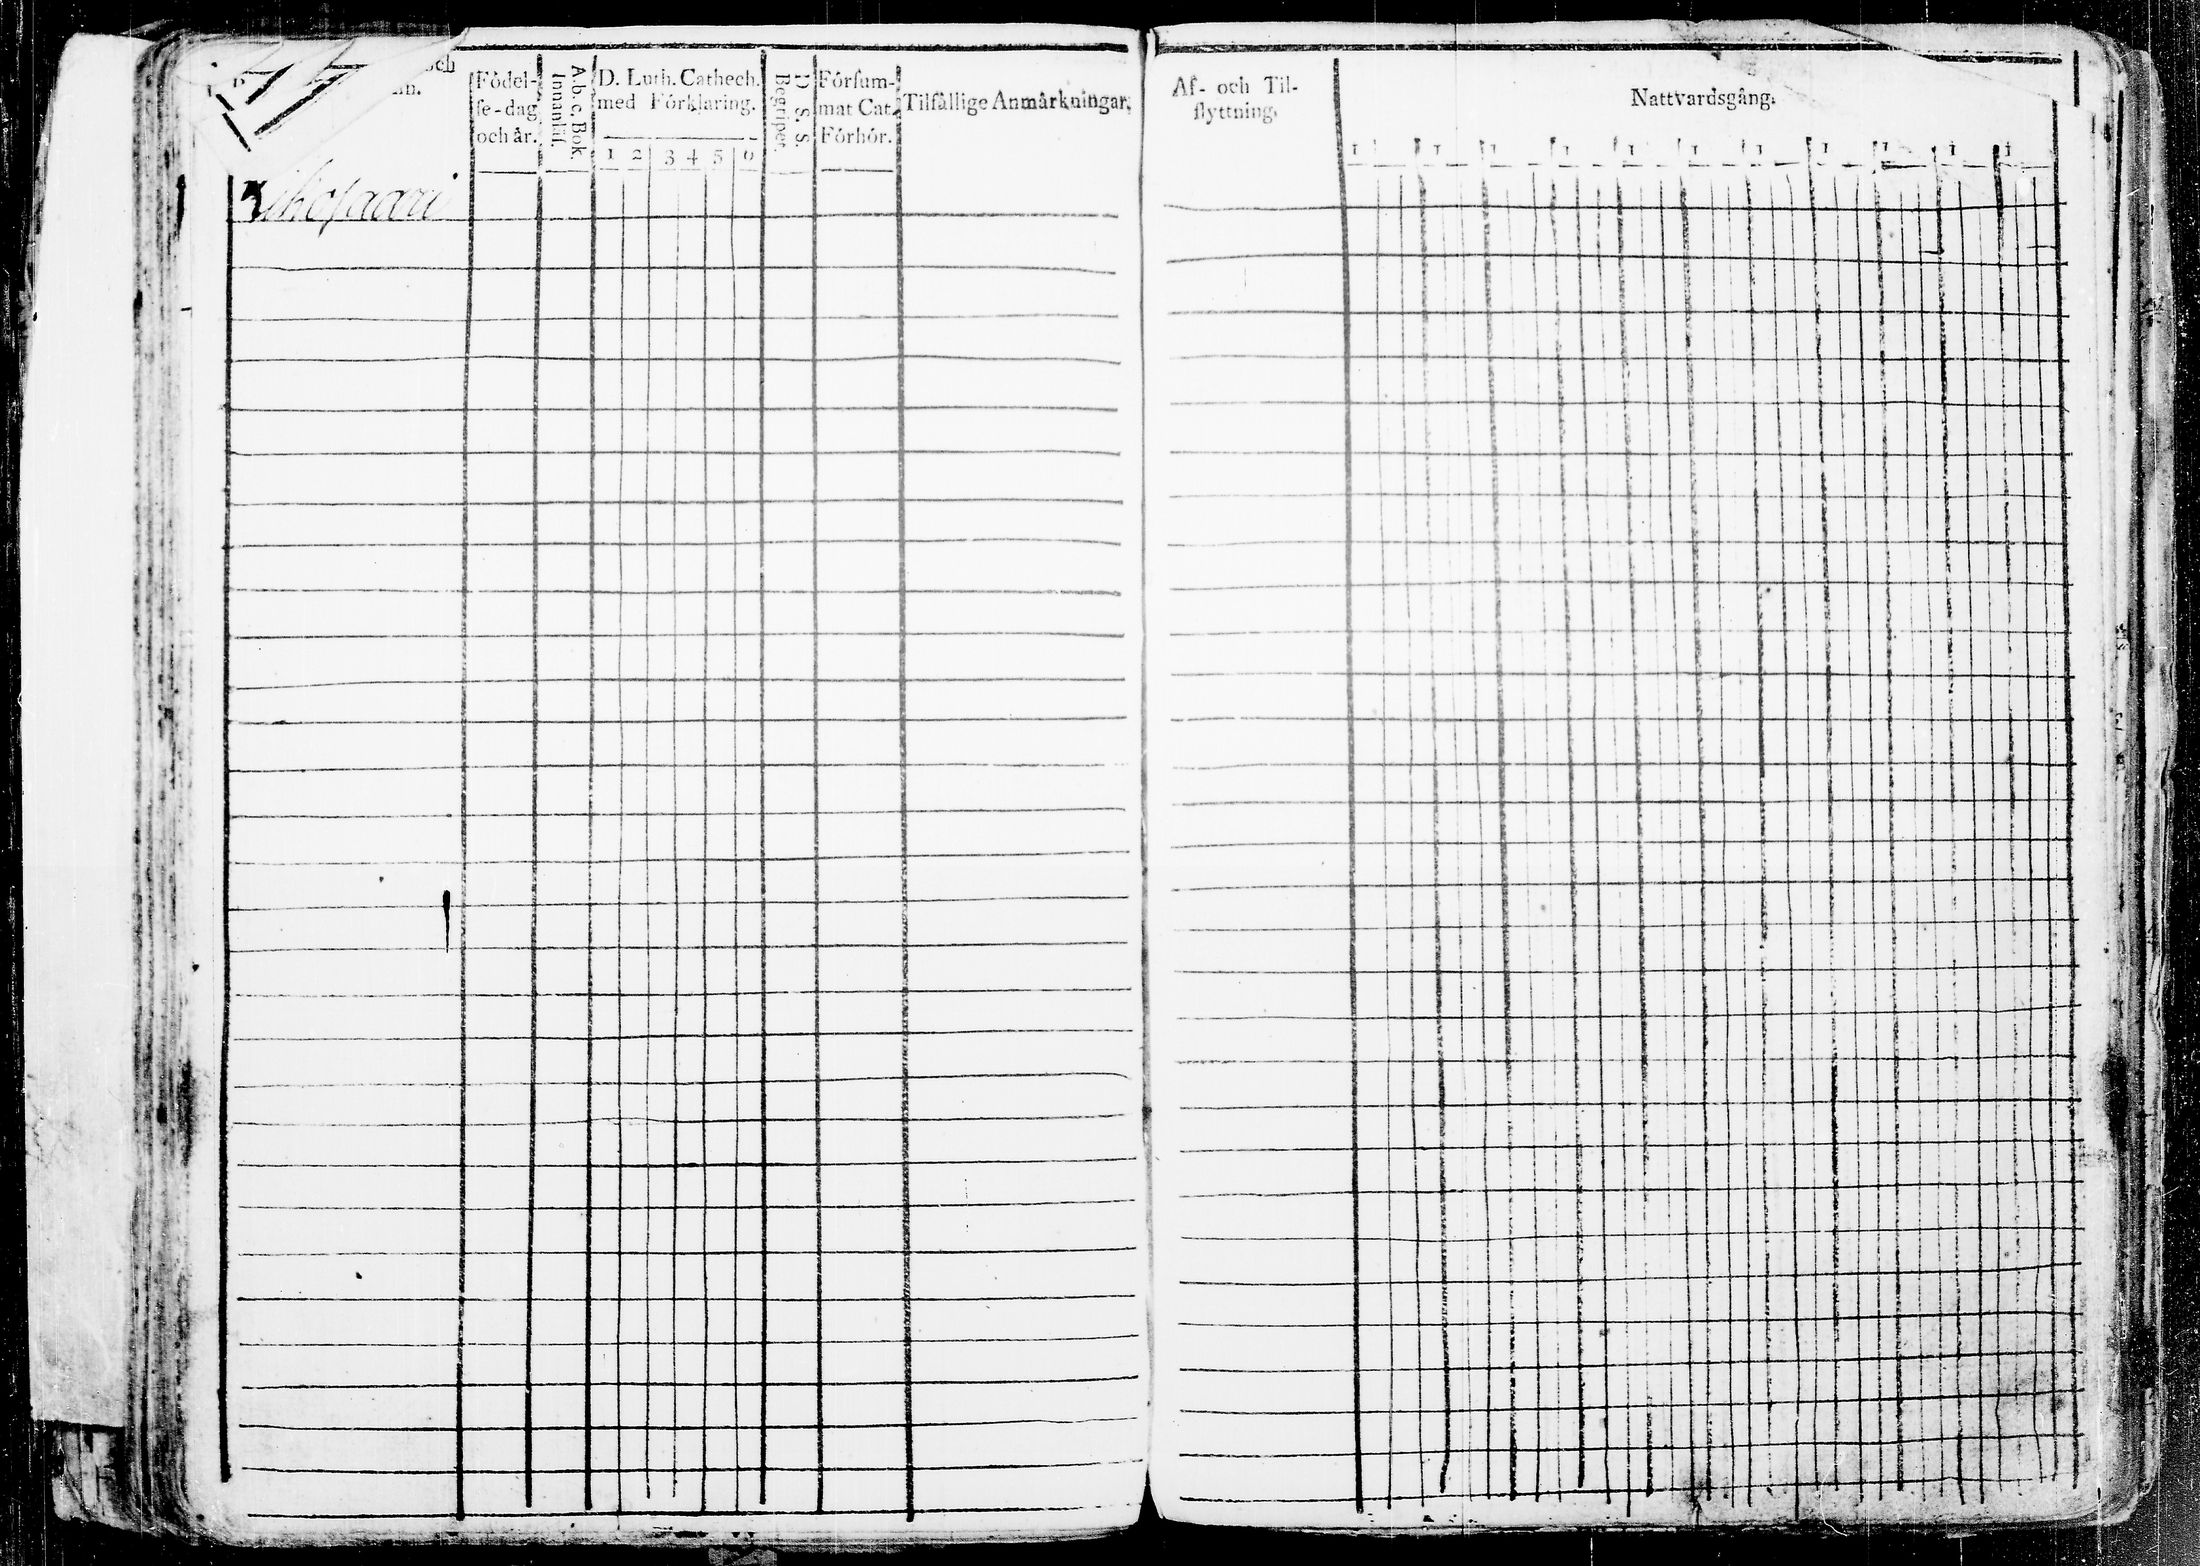 och
Födel-
se-dag
och år.
A. b. c. Bok.
Innantil.
D. Luth. Cathech.
med Förklaring.
1 2 3 4 5 6
D. S. S.
Begriper.
Försum-
mat Cat.
Förhör.
Tilfällige Anmärkningar.
Af- och Til-
flyttning.
Nattvardsgång.
1 1 1 1 1 1 1 1 1 1 1